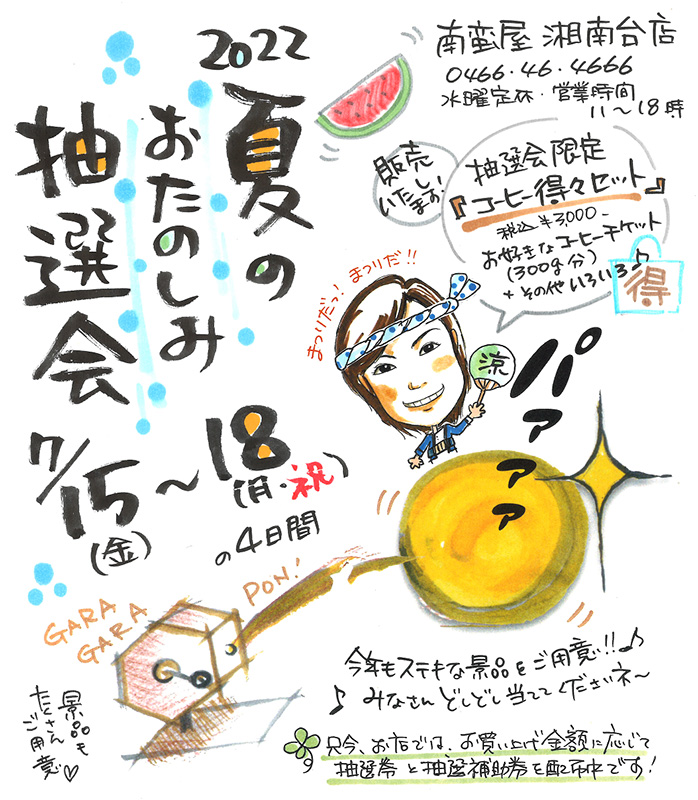 2022
夏の
おたのしみ
抽選会
7/15(金)
〜18(月・祝)
の4日間
南蛮屋 湘南台店
0466・46・4666
水曜定休・営業時間
11〜18時
販売
いたし
ます!
抽選会限定
『コーヒー得々セット』
税込¥3,000-
お好きなコーヒーチケット
(300g分)
+その他いろいろ♪
得
まつりだっ!まつりだ!!
涼
パァァァ
GARA
GARA
PON!
今年もステキな景品をご用意!!♪
♪みなさんどしどし当ててくださいネ〜
景品も
たくさん
ご用意♡
只今、お店では、お買い上げ金額に応じて
抽選券と抽選補助券を配布中です!